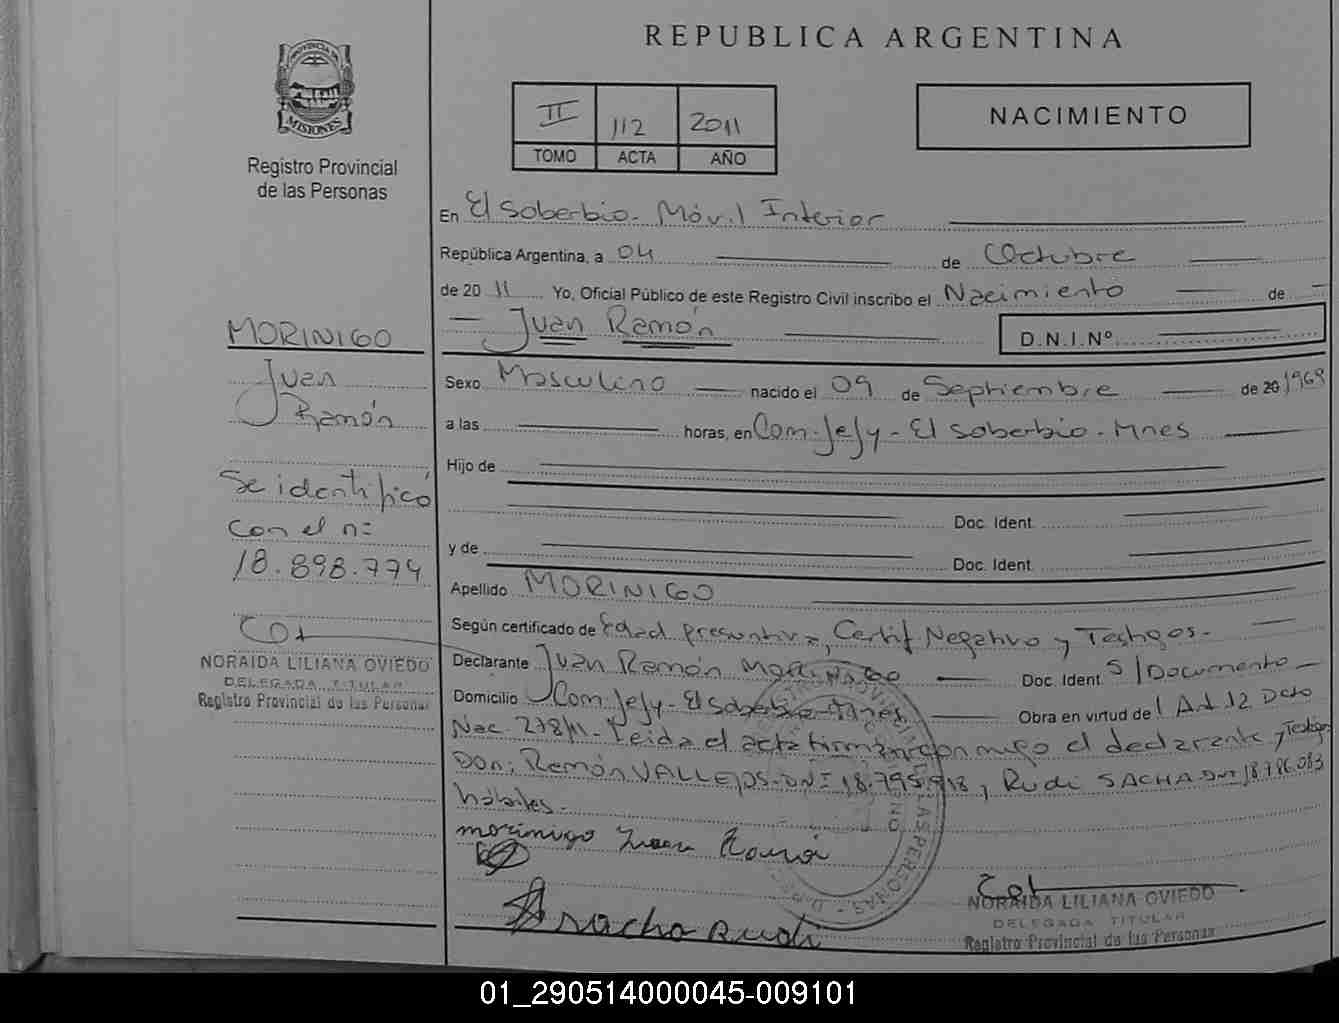 REPUBLICA ARGENTINA
PROVINCIA DE
MISIONES
Registro Provincial
de las Personas
II 112 2011
TOMO ACTA AÑO
NACIMIENTO
En El Soberbio - Móvil Interior
República Argentina, a 04 de Octubre
de 20 11 Yo, Oficial Público de este Registro Civil inscribo el Nacimiento de
Juan Ramón D.N.I.Nº
Sexo Masculino nacido el 09 de Septiembre de 20 1969
a las horas, en Com. Jejy - El Soberbio - Mnes
Hijo de
Doc. Ident.
y de Doc. Ident.
Apellido MORINIGO
Según certificado de Edad presuntiva, Certif Negativo y Testigos.
Declarante Juan Ramón MORINIGO Doc. Ident. S/Documento
Domicilio Com. Jejy - El Soberbio - Mnes Obra en virtud del Art. 12 Dcto
Nac. 278/11 - Leida el acta firman con migo el declarante y Testigos
Don: Ramón VALLEJOS - DNI 18.795.918, Rudi SACHA DNI 18.786.083
hábiles.
morinigo Juan Ramón
Rudi
NORAIDA LILIANA OVIEDO
DELEGADA TITULAR
Registro Provincial de las Personas
MORINIGO
Juan
Ramón
Se identificó
con el nº
18.898.774
NORAIDA LILIANA OVIEDO
DELEGADA TITULAR
Registro Provincial de las Personas
01_290514000045-009101